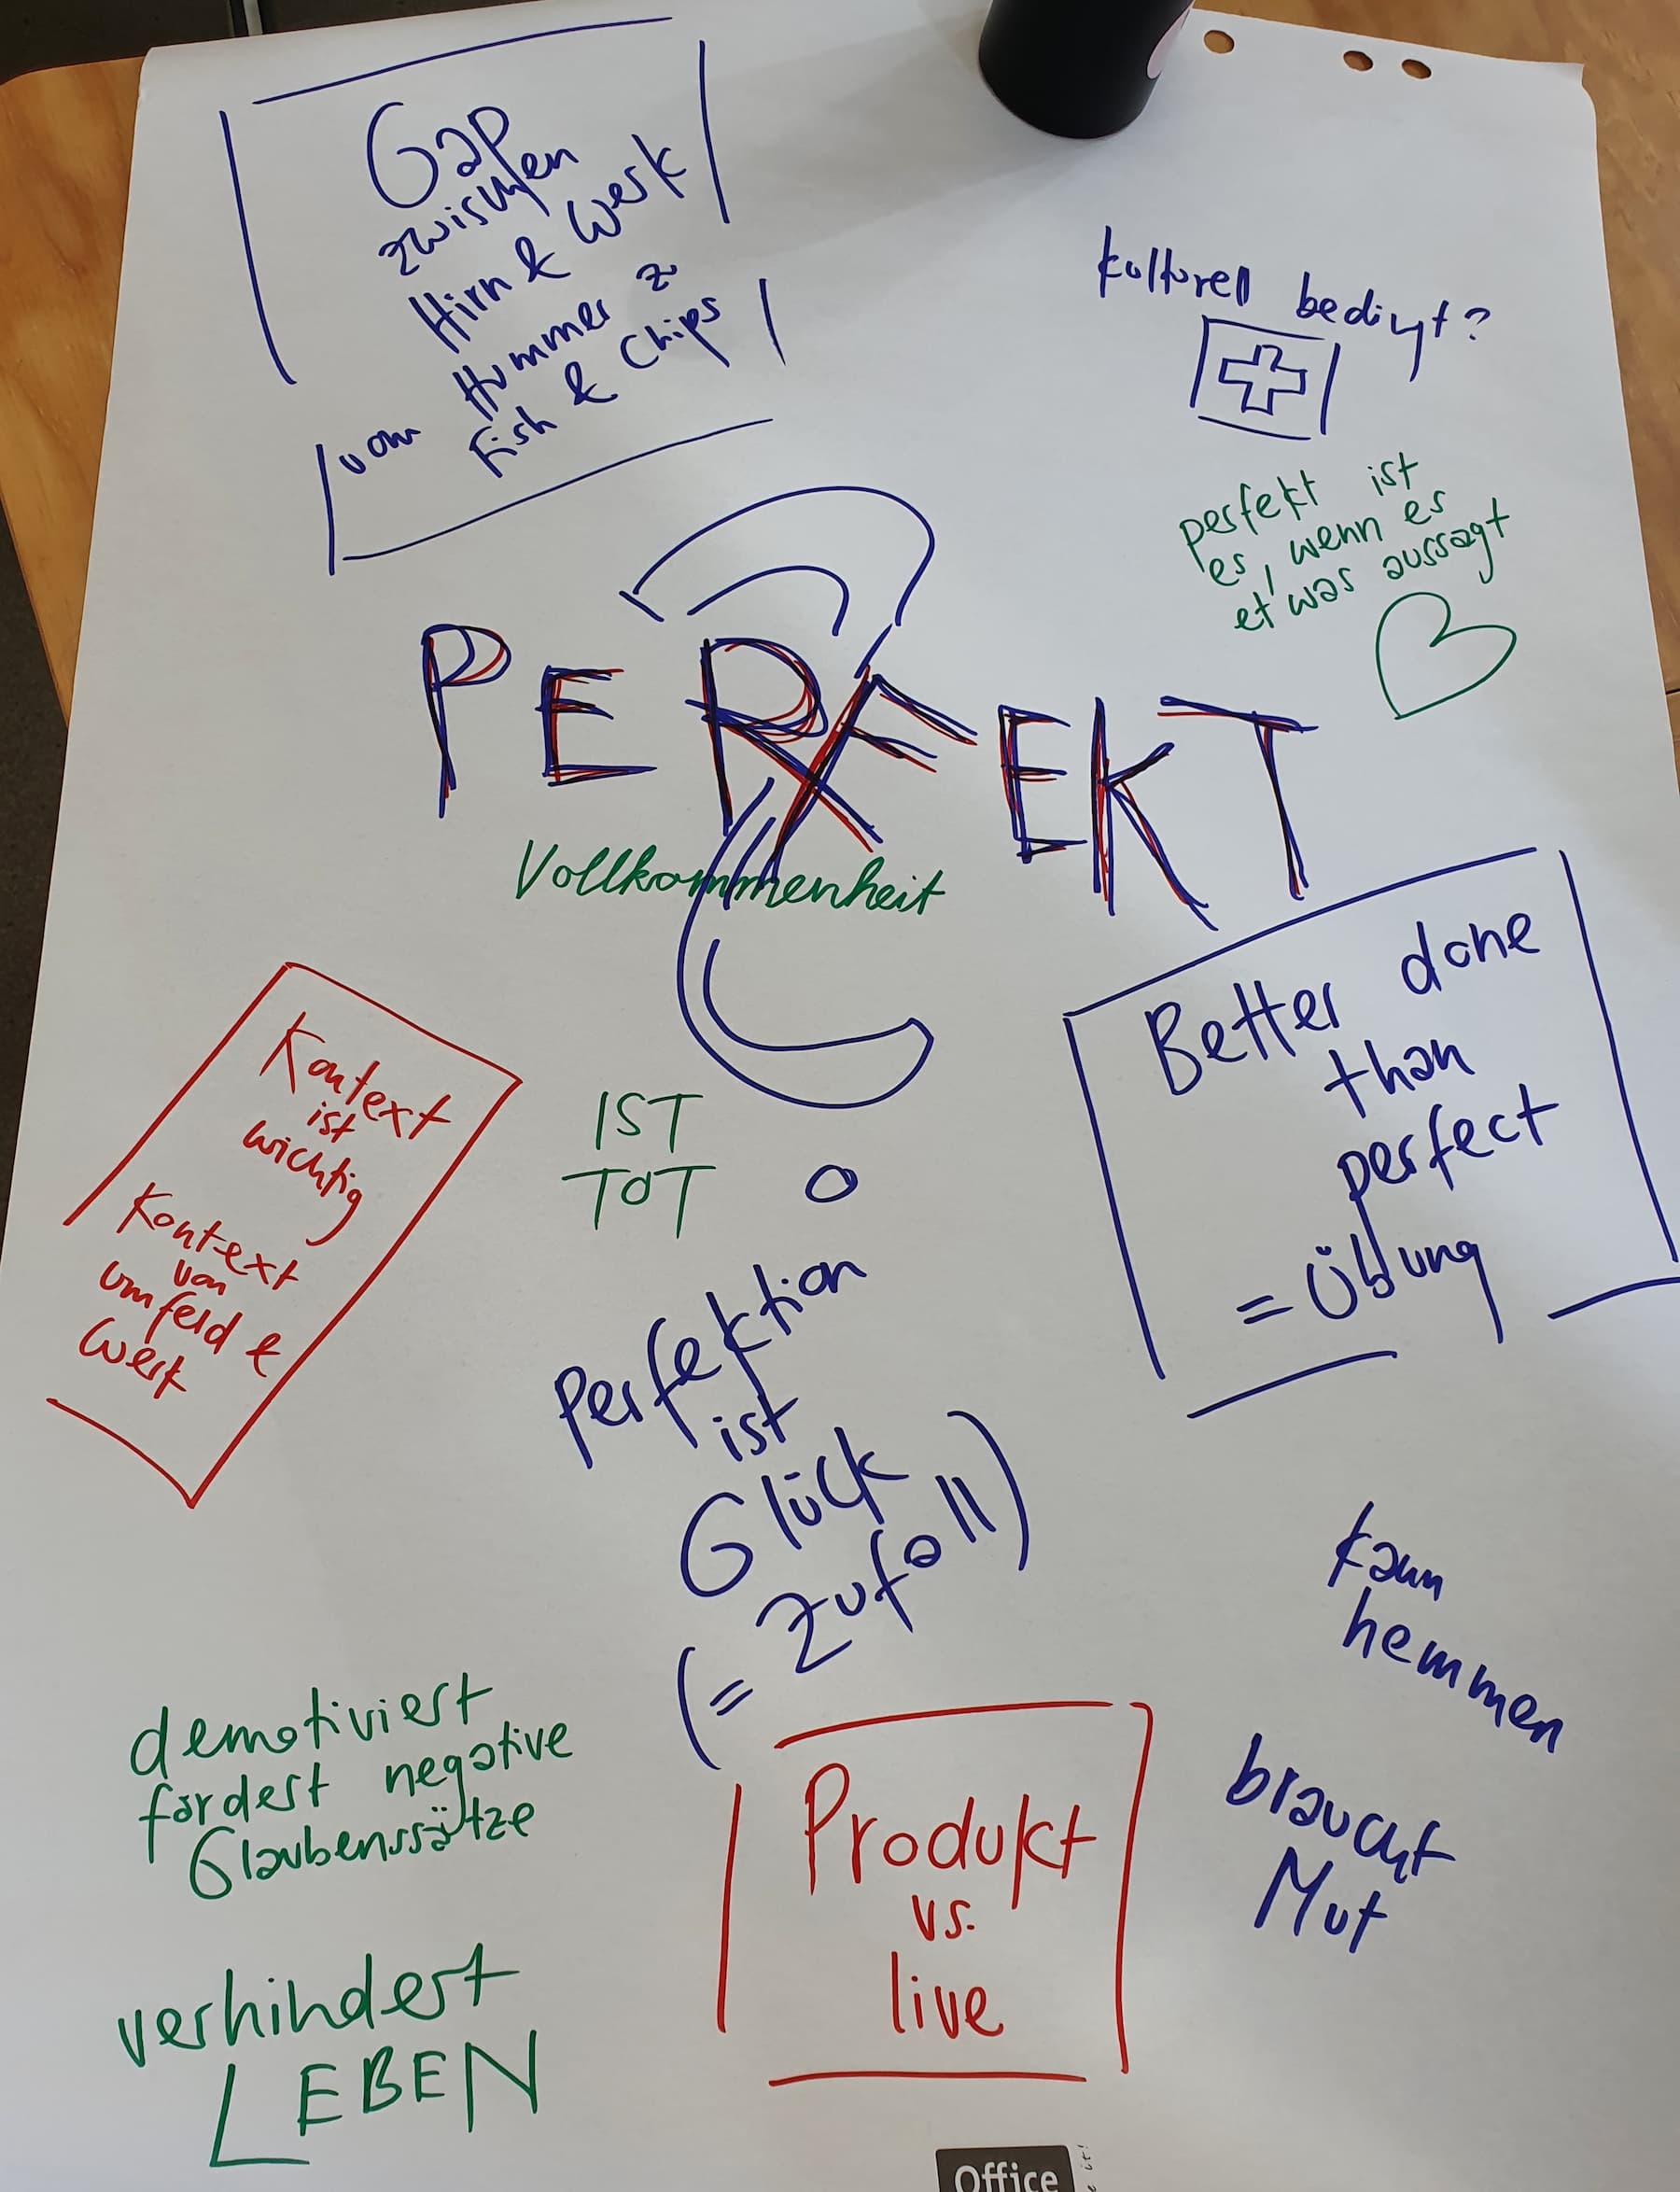 Gap
zwischen
Hirn & Werk
vom Hummer zu
Fish & Chips
kulturell bedingt?
perfekt ist
es, wenn es
etwas aussagt
PERFEKT
Vollkommenheit
IST
TOT
Kontext
ist
wichtig
Kontext
von
umfeld &
Werk
Better done
than
perfect
= Übung
Perfektion
ist
Glück
(= Zufall)
kann
hemmen
braucht
Mut
demotiviert
fördert negative
Glaubenssätze
verhindert
LEBEN
Produkt
vs.
live
Office